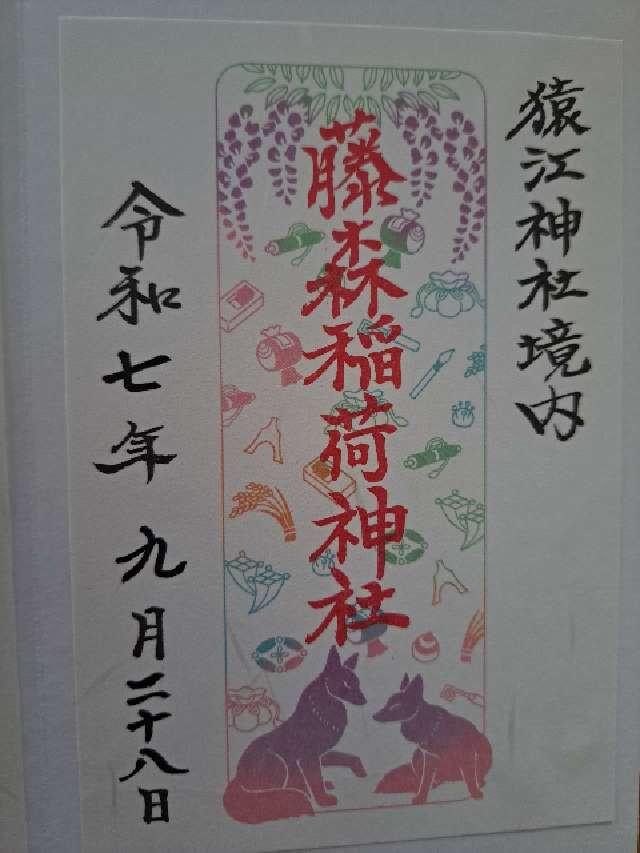 猿江神社境内
藤森稲荷神社
令和七年九月二十八日